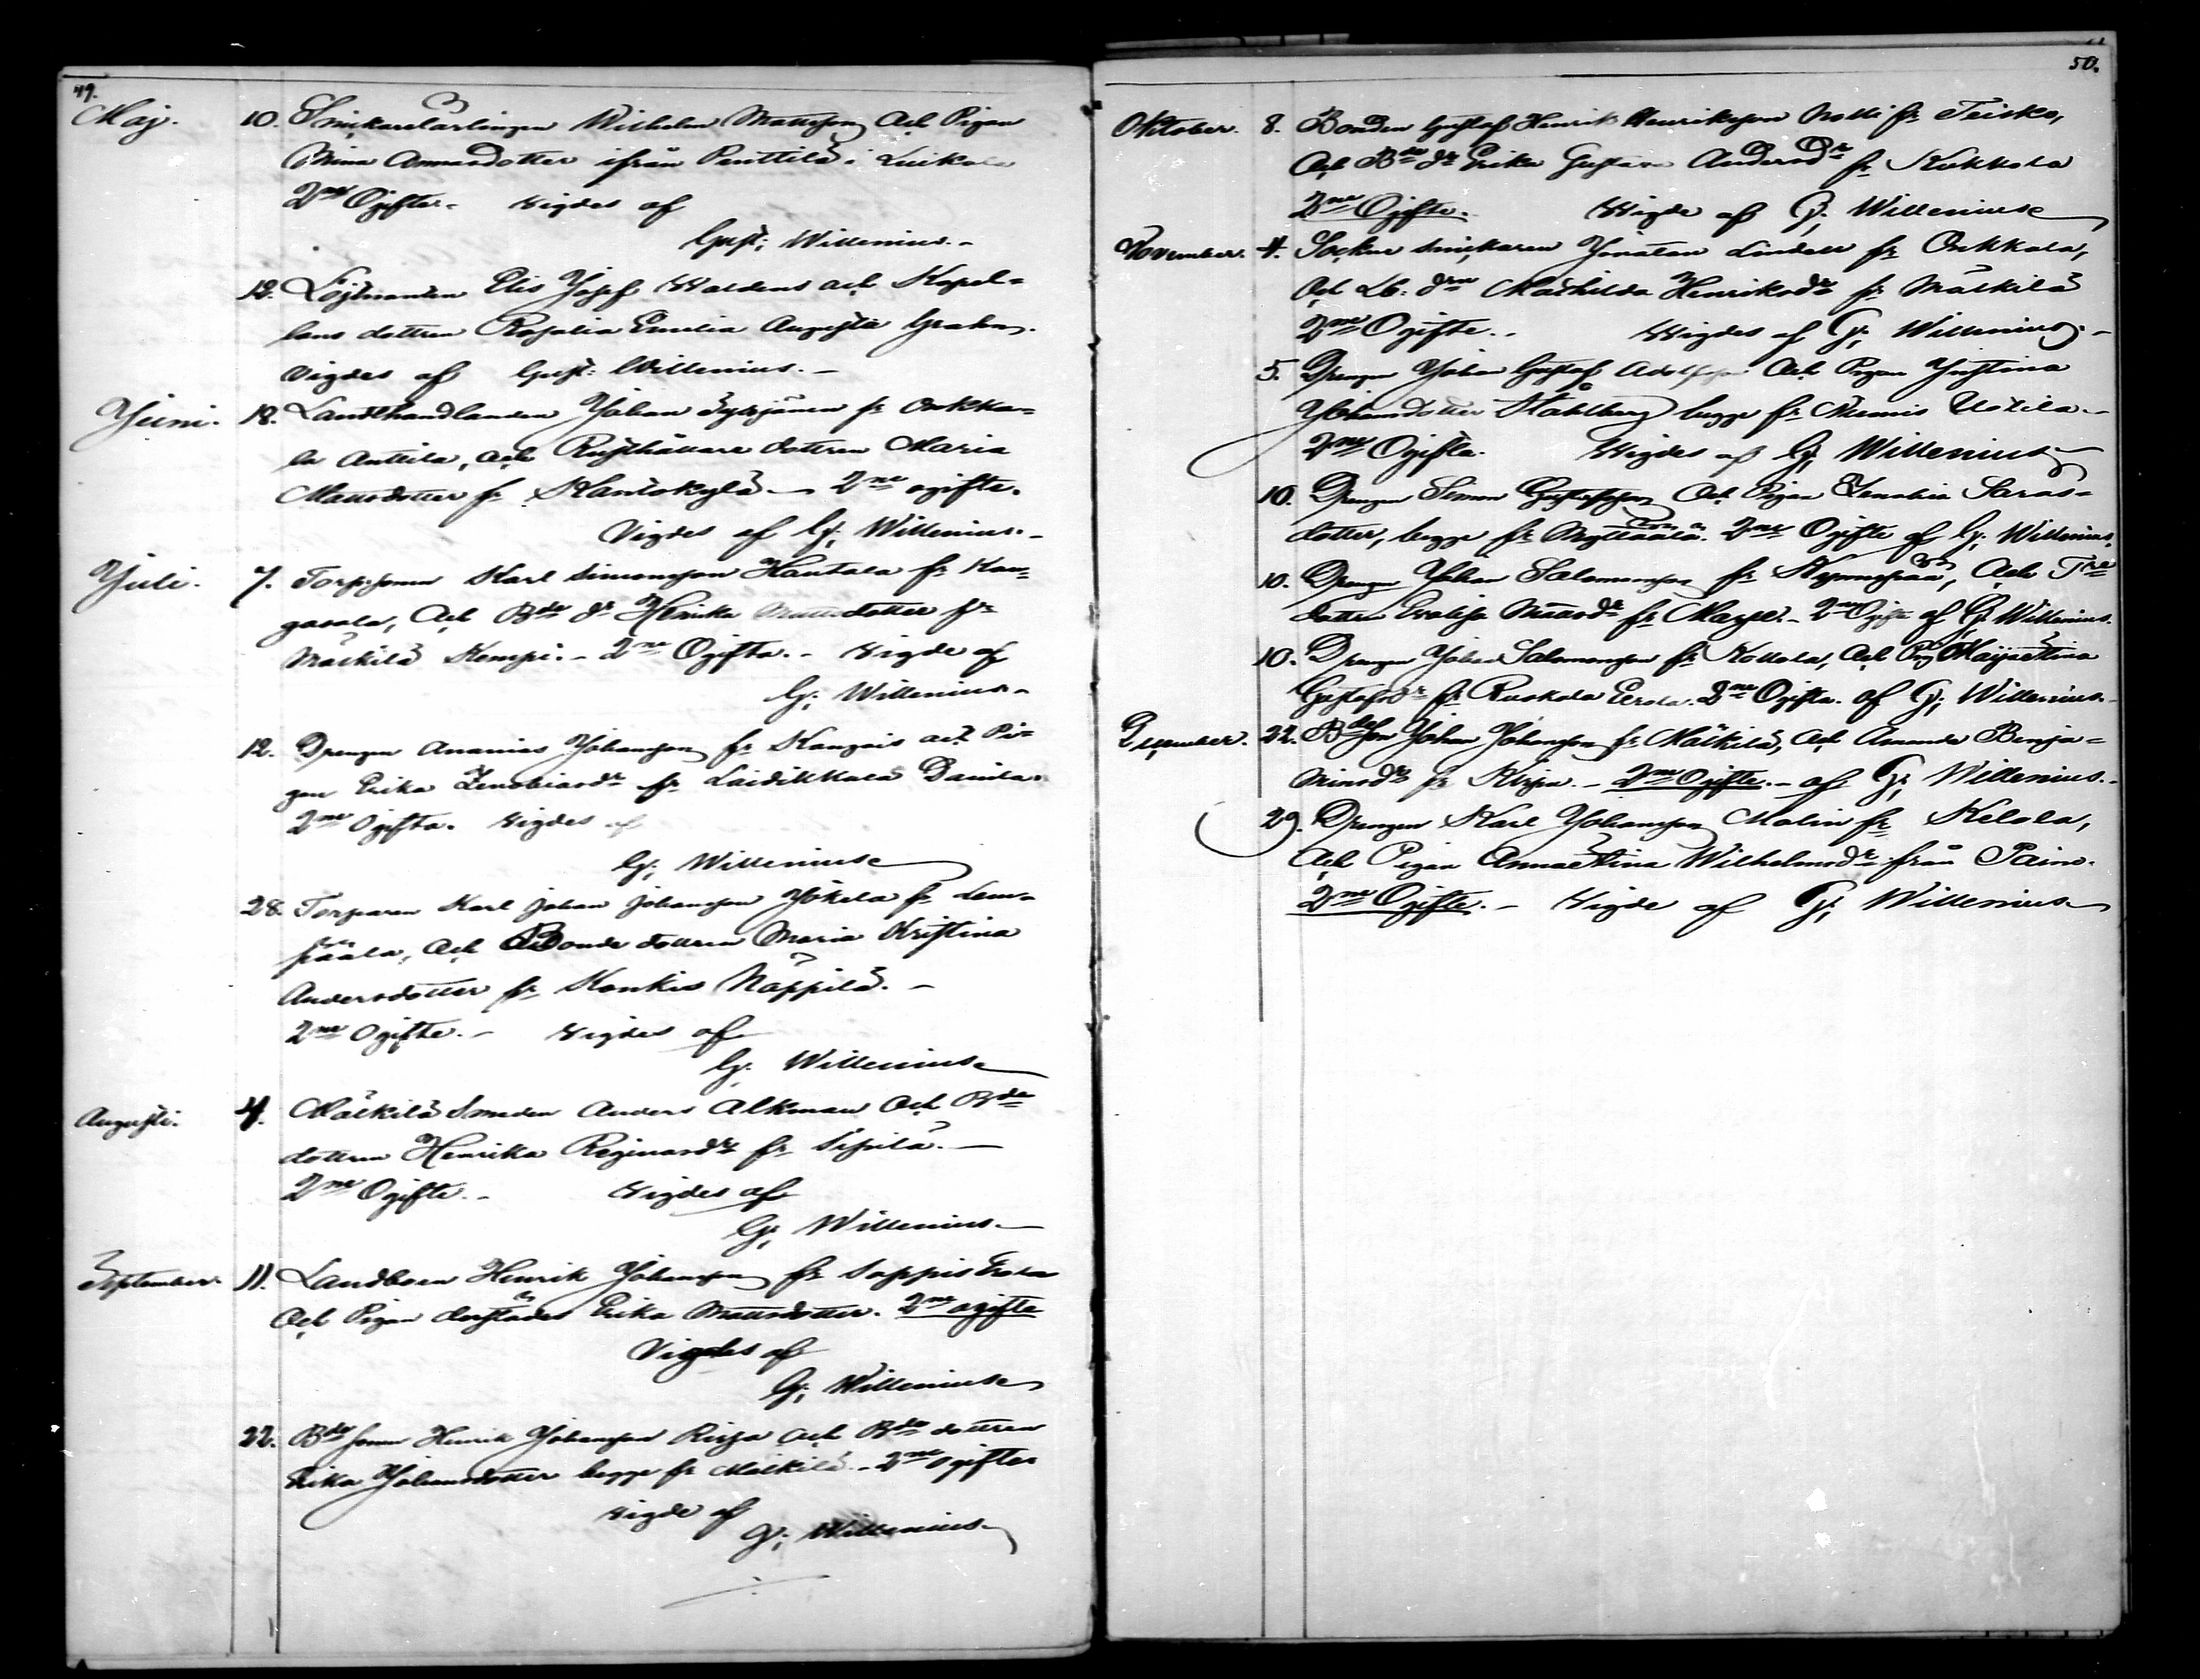 49.
Maj. 10. Snickarelärlingen Wilhelm Mattsson Och Pigan
Mina Annasdotter ifrån Penttilä i Luikala
2ne Ogifte. Vigdes af
Gust; Willenius.-
12. Löjtnanten Elis Josef Waldens och Kapel=
lans dottren Rosalia Emelia Augusta Grahn.
Vigdes af Gust: Willenius.-
Juni. 18. Landthandlanden Johan Syrjänen fr Onkka=
la Anttila, och Rusthållare dottren Maria
Mattsdotter fr Kantokylä - 2ne ogifte.
Vigdes af G; Willenius.-
Juli. 7. Torp.sonen Karl Simonsson Hantala fr Kan=
gasala, Och Bde dr Henrika Mattsdotter fr
Mälkilä Kempi.- 2ne Ogifta.- Vigde af
G; Willenius.-
12. Drengen Ananias Johansson fr Kangais och Pi=
gan Erika Zenobiasdr fr Laidikkala Danila.
2ne Ogifta. Vigdes af
G; Willenius
28. Torparen Karl Johan Johansson Jokela fr Lem=
päälä, Och Bonde dottren Maria Kristina
Andersdotter fr Konkis Näppilä.-
2ne Ogifte.- Vigdes af
G. Willenius
Augusti. 4. Mälkilä Smeden Anders Alkman Och Bde
dottren Henrika Reginasdr fr Sipilä.-
2ne Ogifte.- Vigdes af
G; Willenius.-
September. 11. Landboen Henrik Johansson fr Sappis Erola
Och Pigan derstädes Erika Mattsdotter. 2ne ogifte
Vigdes af
G; Willenius
22. Bde sonen Henrik Johansson Reipa och Bde dottren
Erika Johansdotter begge fr Mälkilä - 2ne ogifter
Vigde af
G; Willenius
50.
Oktober. 8. Bonden Gustaf Henrik Henriksson Notti fr Teisko,
Och Bde dr Erika Gustava Andersdr fr Kokkola
2ne Ogifte. Vigde af G; Willenius
November. 4. Sockne snickaren Jonatan Lindell fr Onkkala,
Och Lb. drn Mathilda Henriksdr fr Mälkilä
2ne Ogifte.. Vigdes af G; Willenius.-
5. Drengen Johan Gustaf Adolfsson Och Pigan Justina
Johansdotter Ståhlberg begge fr Niemis Uotila.-
2ne Ogifta. Vigdes af G; Willenius
10. Drengen Simon Gustafsson Och Pigan Zenobia Saras=
dotter, begge fr Myttäälä. 2ne Ogifte af G; Willenius.
10. Drengen Johan Salomonsson fr, Och
dottren Evalisa fr 2ne Ogifte af G; Willenius.
10. Drengen Johan Salomonsson fr Kottola, Och Pig Majastina
Gustafsdr fr Ruokola Erola. 2ne Ogifta. af G; Willenius.
December. 22. Bdeson Johan Johansson fr Mälkilä, Och Amanda Benja=
minsdr fr.- 2ne Ogifte.- af G; Willenius.-
29. Drengen Karl Johansson Malin fr Kelola,
Och Pigan Annastina Wilhelmsdr från Paino.
2ne Ogifte.- Vigde af G; Willenius